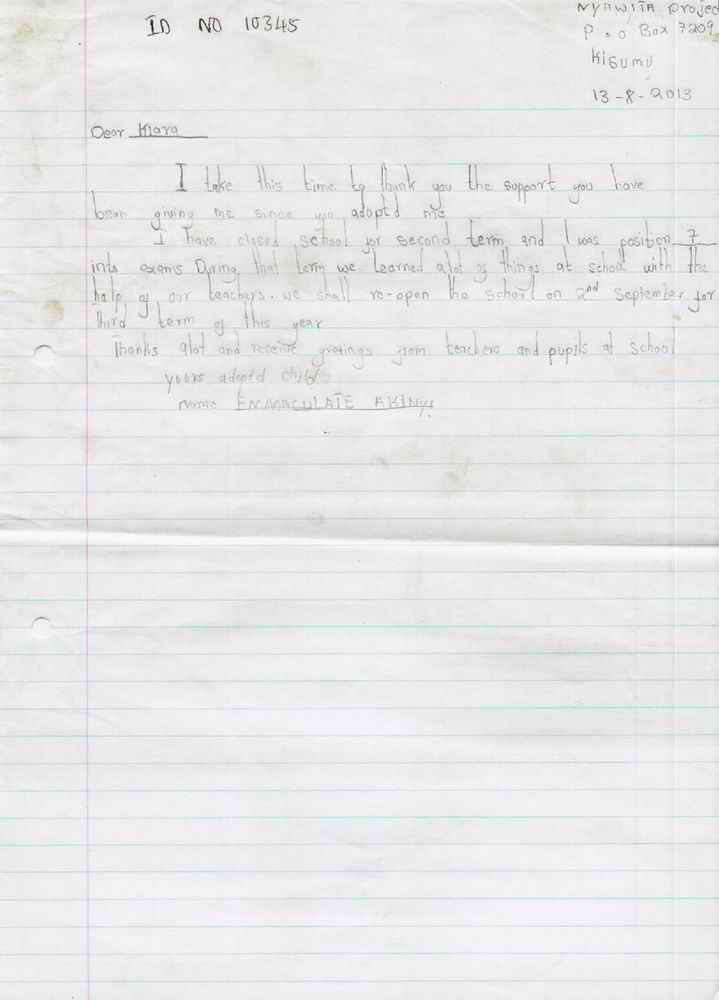 ID NO 10345
NYAWITA Projec
P.O Box 7209
KISUMU
13-8-2013
Dear Kiara
I take this time to thank you the support you have
been giving me since you adopt'd me
I have closed school for second term and I was position 7
into exams During that term we learned alot of things at school with the
help of our teachers. we shall re-open the school on 2nd September for
third term of this year
Thanks alot and receive gretings from teachers and pupils at school
yours adopted child
name EMMACULATE AKINYI